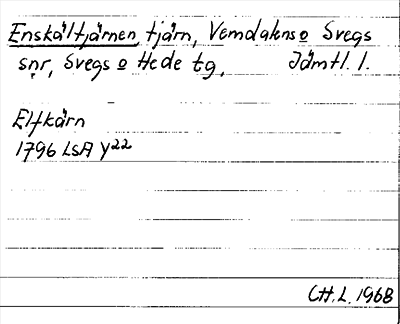 Enskältjärnen, tjärn, Vemdalens o Svegs
snr, Svegs o Hede tg, Jämtl. l.
Elfkärn
1796 LSA Y22
CH. L. 1968